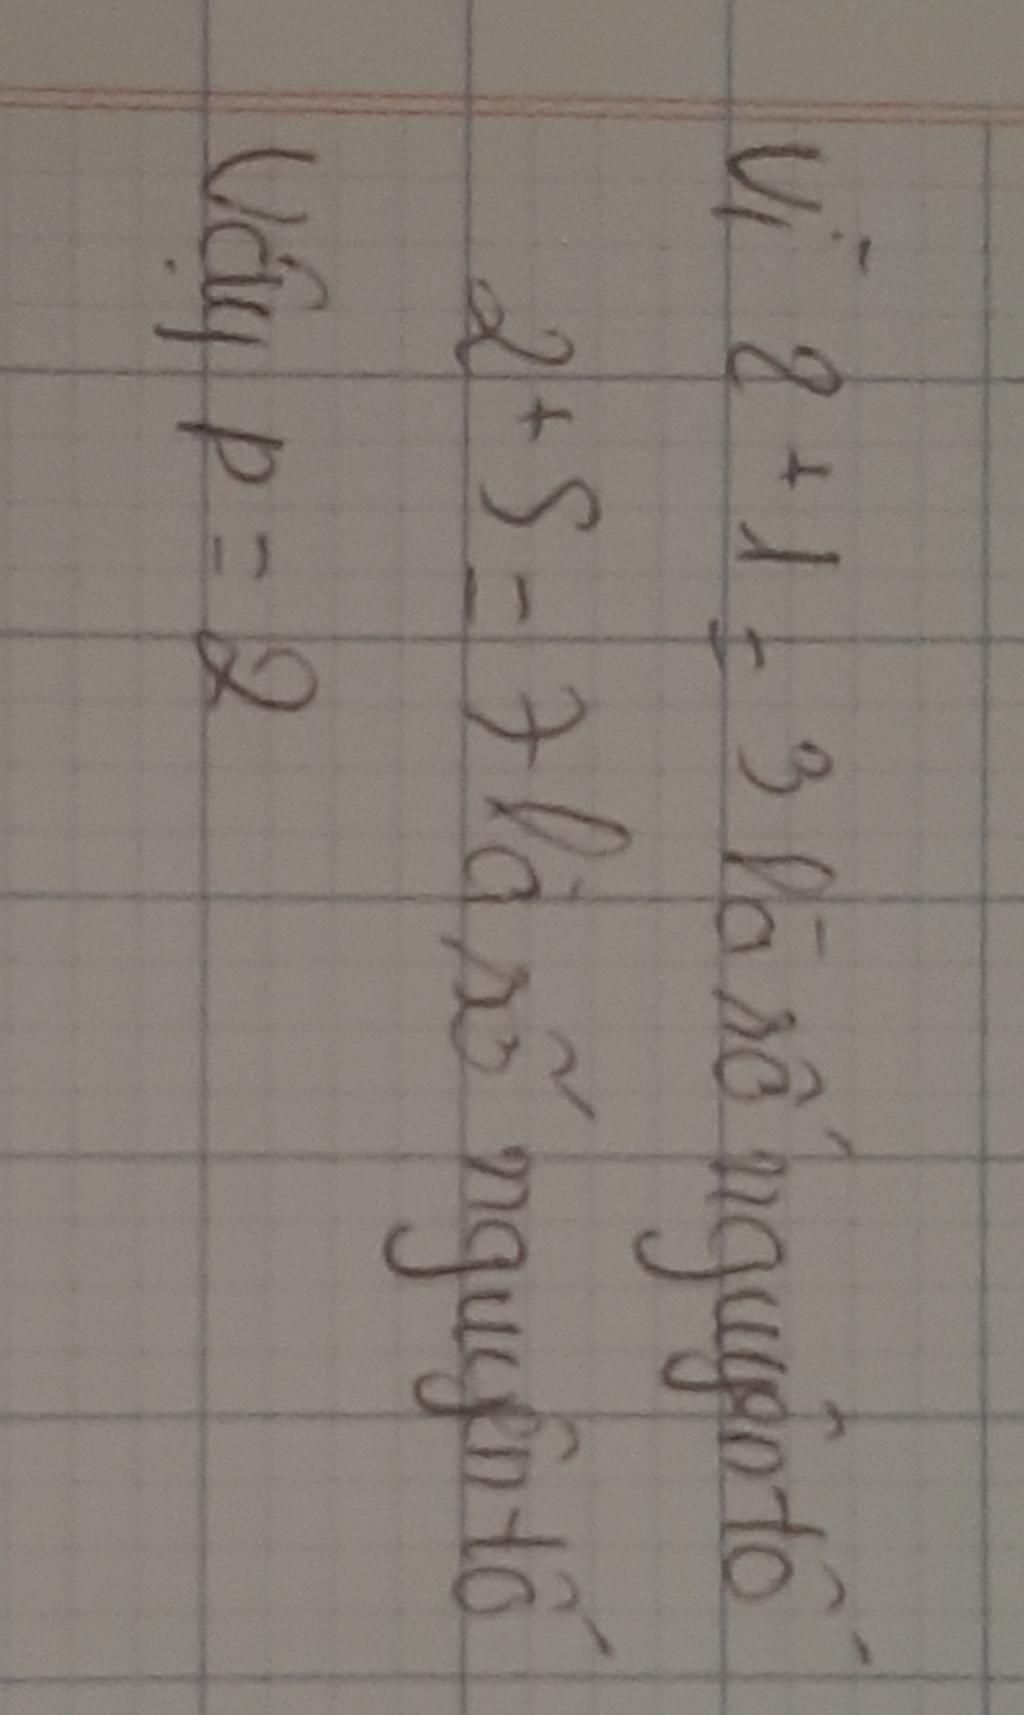 Vì 2 + 1 = 3 là số nguyên tố
2 + 5 = 7 là số nguyên tố
Vậy p = 2